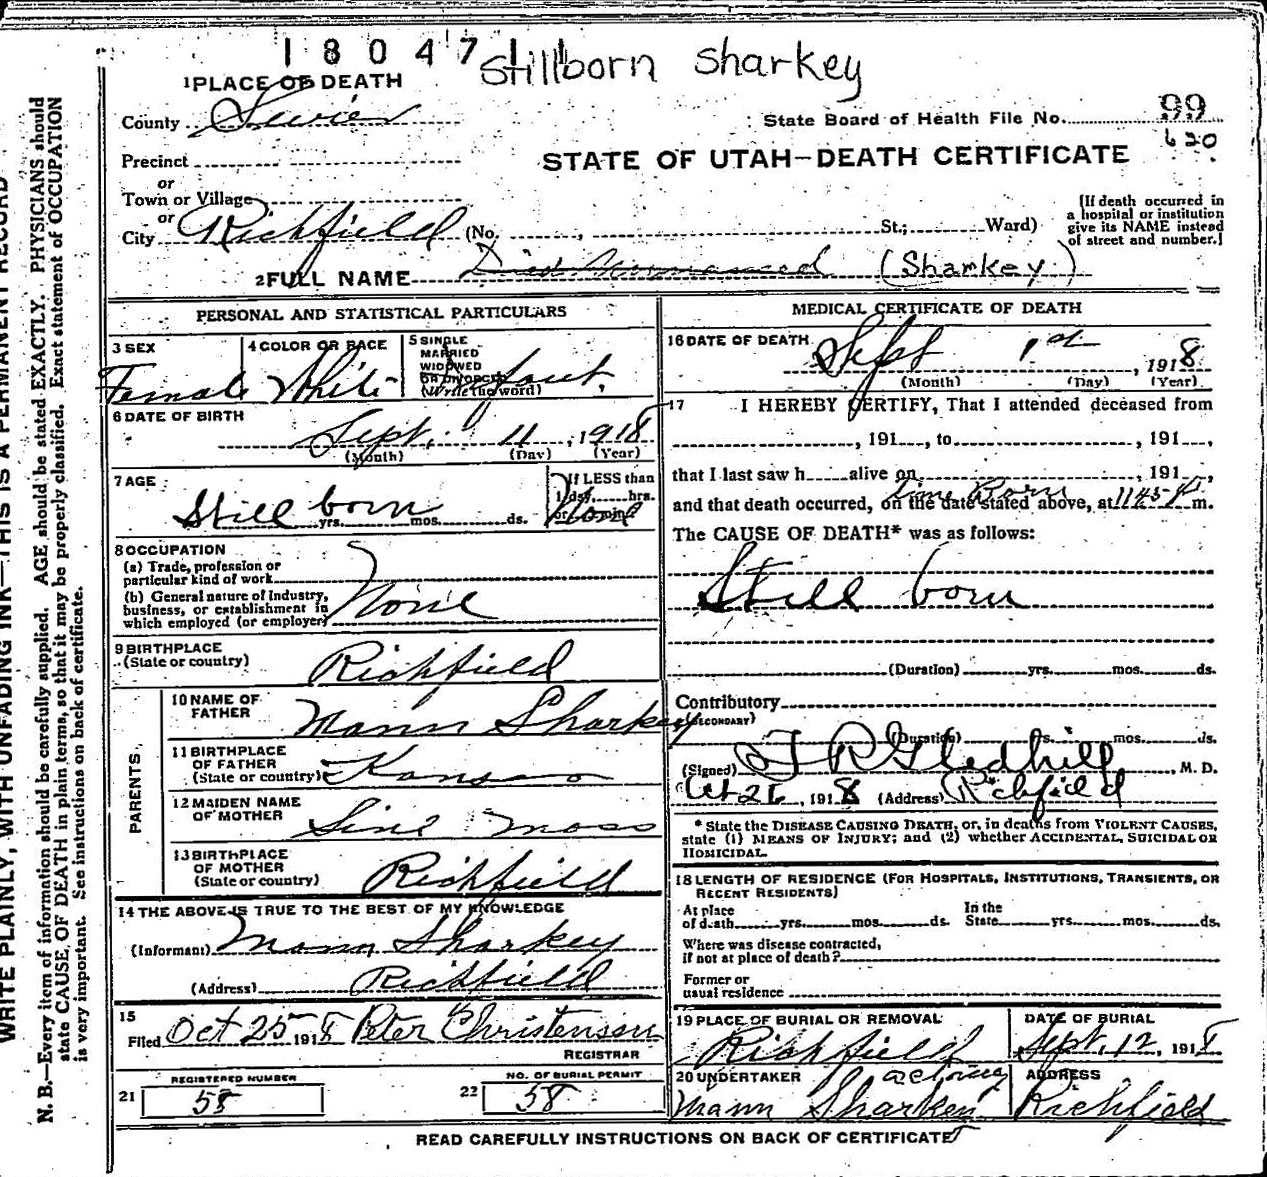 18047
Stillborn Sharkey
1 PLACE OF DEATH
County Sevier
State Board of Health File No. 99
620
Precinct
STATE OF UTAH—DEATH CERTIFICATE
or
Town or Village
or
City Richfield (No. , St.; Ward)
[If death occurred in
a hospital or institution
give its NAME instead
of street and number.]
2 FULL NAME Died Unnamed (Sharkey)
PERSONAL AND STATISTICAL PARTICULARS
3 SEX
Female
4 COLOR OR RACE
White
5 SINGLE
MARRIED
WIDOWED
OR DIVORCED
(Write the word)
Infant.
6 DATE OF BIRTH
Sept. 11, 1918
(Month) (Day) (Year)
7 AGE
Still born
yrs. mos. ds.
If LESS than
1 day hrs.
or min?
None
8 OCCUPATION
(a) Trade, profession or
particular kind of work
(b) General nature of Industry,
business, or establishment in
which employed (or employer)
None
9 BIRTHPLACE
(State or country) Richfield
PARENTS
10 NAME OF
FATHER Mann Sharkey
11 BIRTHPLACE
OF FATHER
(State or country) Kansas
12 MAIDEN NAME
OF MOTHER Sine Moss
13 BIRTHPLACE
OF MOTHER
(State or country) Richfield
14 THE ABOVE IS TRUE TO THE BEST OF MY KNOWLEDGE
(Informant) Mann Sharkey
(Address) Richfield
15
Filed Oct 25 1918 Peter Christensen
REGISTRAR
REGISTERED NUMBER
21 58
NO. OF BURIAL PERMIT
22 58
MEDICAL CERTIFICATE OF DEATH
16 DATE OF DEATH
Sept 1st, 1918
(Month) (Day) (Year)
17 I HEREBY CERTIFY, That I attended deceased from
, 191 , to , 191 ,
that I last saw h alive on , 191 ,
Time Born
and that death occurred, on the date stated above, at 1145 P m.
The CAUSE OF DEATH* was as follows:
Still born
(Duration) yrs. mos. ds.
Contributory
(SECONDARY)
(Duration) s. mos. ds.
(Signed) T R Gledhill, M. D.
Oct 26, 1918 (Address) Richfield
* State the DISEASE CAUSING DEATH, or, in deaths from VIOLENT CAUSES,
state (1) MEANS OF INJURY; and (2) whether ACCIDENTAL, SUICIDAL OR
HOMICIDAL.
18 LENGTH OF RESIDENCE (FOR HOSPITALS, INSTITUTIONS, TRANSIENTS, OR
RECENT RESIDENTS)
At place
of death yrs. mos. ds.
In the
State yrs. mos. ds.
Where was disease contracted,
if not at place of death?
Former or
usual residence
19 PLACE OF BURIAL OR REMOVAL
Richfield
DATE OF BURIAL
Sept. 12, 1918
20 UNDERTAKER acting
Mann Sharkey
ADDRESS
Richfield
READ CAREFULLY INSTRUCTIONS ON BACK OF CERTIFICATE
WRITE PLAINLY, WITH UNFADING INK—THIS IS A PERMANENT RECORD
N. B.—Every item of information should be carefully supplied. AGE should be stated EXACTLY. PHYSICIANS should
state CAUSE OF DEATH in plain terms, so that it may be properly classified. Exact statement of OCCUPATION
is very important. See instructions on back of certificate.